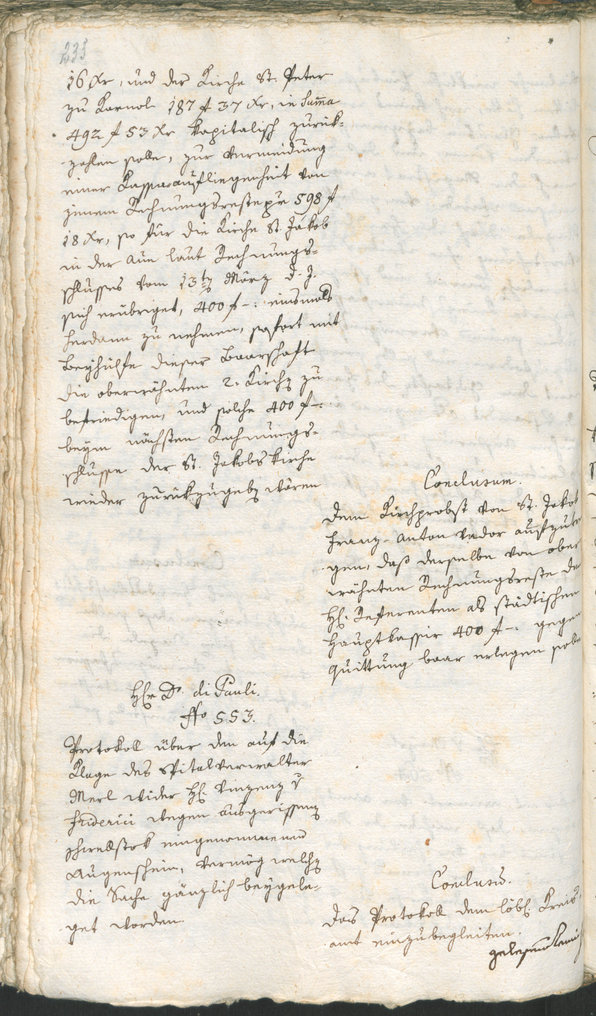 235
16 Xr, und der Kirche St. Peter
zu Karnol 187 f 37 Xr, in Suma
492 f 53 Xr Kapitalisch zurük-
zahlen solle, zur Vermeidung
einer Kassaaufliegenheit von
jenem Rechnungsreste pr 598 f
18 Xr, so für die Kirche St. Jakob
in der Aue laut Rechnungs-
schlusses vom 13t März d. J.
sich erübriget, 400 f -: einsmals
herdann zu nehmen, sofort mit
Beyhülfe dieser Baarschaft
die oberwähnten 2. Kirch zu
befriedigen, und solche 400 f -:
beym nächsten Rechnungs-
schlusse der St. Jakobskirche
wieder zurükzugeb wären
Conclusum.
Dem Kirchprobst von St. Jakob
Franz Anton aufzutra
gen, daß derselbe von ober
wähnten Rechnungsreste de
H: Referenten als städtischen
Hauptkassir 400 f -: gegen
Quittung baar erlegen solle
H Dr. di Pauli.
No 553.
Protokoll über den auf die
Klage des Spitalverwalter
Merl wider H: Vinzenz v
Friderici wegen ausgerissen
eingenommenen
Augenschein, vermög welch
die Sache gänzlich beygele-
get worden
Conclusu.
Das Protokoll dem löbl: Kreis-
amt einzubegleiten.